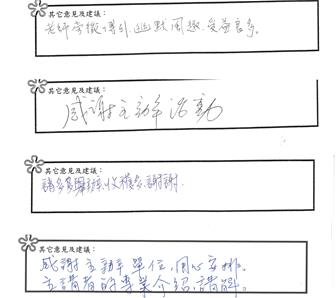 其它意見及建議：
老師旁徵博引、幽默風趣、受益良多。
其它意見及建議：
感謝主辦活動
其它意見及建議：
請多多舉辦，收穫多，謝謝。
其它意見及建議：
感謝主辦單位，用心安排。
主講者的專業介紹、講解。